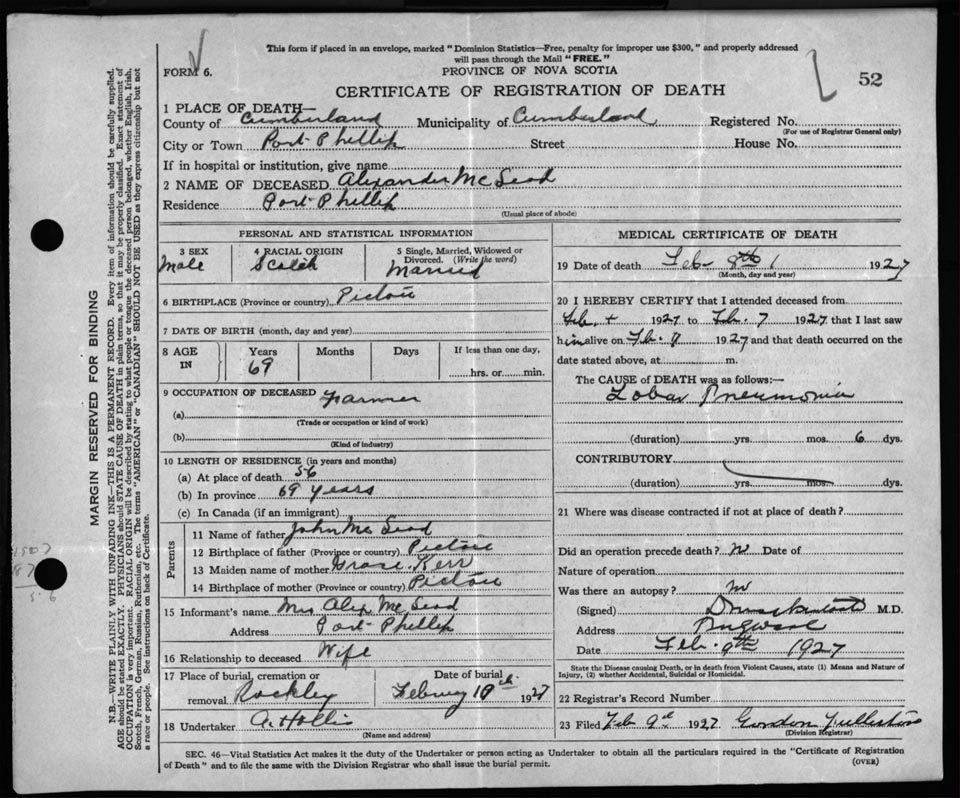 This form if placed in an envelope, marked "Dominion Statistics—Free, penalty for improper use $300," and properly addressed
will pass through the Mail "FREE."
FORM 6.
PROVINCE OF NOVA SCOTIA
52
CERTIFICATE OF REGISTRATION OF DEATH
1 PLACE OF DEATH—
County of Cumberland Municipality of Cumberland Registered No.
(For use of Registrar General only)
City or Town Port Phillip Street House No.
If in hospital or institution, give name
2 NAME OF DECEASED Alexander McLeod
Residence Port Phillip
(Usual place of abode)
PERSONAL AND STATISTICAL INFORMATION
3 SEX 4 RACIAL ORIGIN 5 Single, Married, Widowed or
Divorced. (Write the word)
Male Scotch Married
6 BIRTHPLACE (Province or country) Pictou
7 DATE OF BIRTH (month, day and year)
8 AGE IN Years Months Days If less than one day,
69 hrs. or min.
9 OCCUPATION OF DECEASED Farmer
(a)
(Trade or occupation or kind of work)
(b)
(Kind of industry)
10 LENGTH OF RESIDENCE (in years and months)
(a) At place of death 56
(b) In province 69 years
(c) In Canada (if an immigrant)
Parents
11 Name of father John McLeod
12 Birthplace of father (Province or country) Pictou
13 Maiden name of mother Grace Kerr
14 Birthplace of mother (Province or country) Pictou
15 Informant's name Mrs Alex McLeod
Address Port Phillip
16 Relationship to deceased Wife
17 Place of burial, cremation or Date of burial
removal Rockley Februay 10th 1927
18 Undertaker A. Hollis
(Name and address)
MEDICAL CERTIFICATE OF DEATH
19 Date of death Feb 8th 1927
(Month, day and year)
20 I HEREBY CERTIFY that I attended deceased from
Feb. 1927 to Feb. 7 1927 that I last saw
him alive on Feb. 1927 and that death occurred on the
date stated above, at m.
The CAUSE of DEATH was as follows:—
Lobar Pneumonia
(duration) yrs. mos. 6 dys.
CONTRIBUTORY
(duration) yrs. mos. dys.
21 Where was disease contracted if not at place of death?
Did an operation precede death? N Date of
Nature of operation
Was there an autopsy? N
(Signed) M.D.
Address Pugwash
Date Feb. 9th 1927
State the Disease causing Death, or in death from Violent Causes, state (1) Means and Nature of
Injury, (2) whether Accidental, Suicidal or Homicidal.
22 Registrar's Record Number
23 Filed Feb 9th 1927 Gordon
(Division Registrar)
SEC. 46—Vital Statistics Act makes it the duty of the Undertaker or person acting as Undertaker to obtain all the particulars required in the "Certificate of Registration
of Death" and to file the same with the Division Registrar who shall issue the burial permit.
(OVER)
MARGIN RESERVED FOR BINDING
N.B.—WRITE PLAINLY WITH UNFADING INK—THIS IS A PERMANENT RECORD. Every item of information should be carefully supplied.
AGE should be stated EXACTLY. PHYSICIANS should STATE CAUSE OF DEATH in plain terms, so that it may be properly classified. Exact statement of
OCCUPATION is very important. RACIAL ORIGIN will be described by stating to what people or tongue the deceased person belonged, whether English, Irish,
Scotch, French, German, Russian, Ruthenian, etc. The terms "AMERICAN" or "CANADIAN" SHOULD NOT BE USED as they express citizenship but not
a race or people. See instructions on back of Certificate.